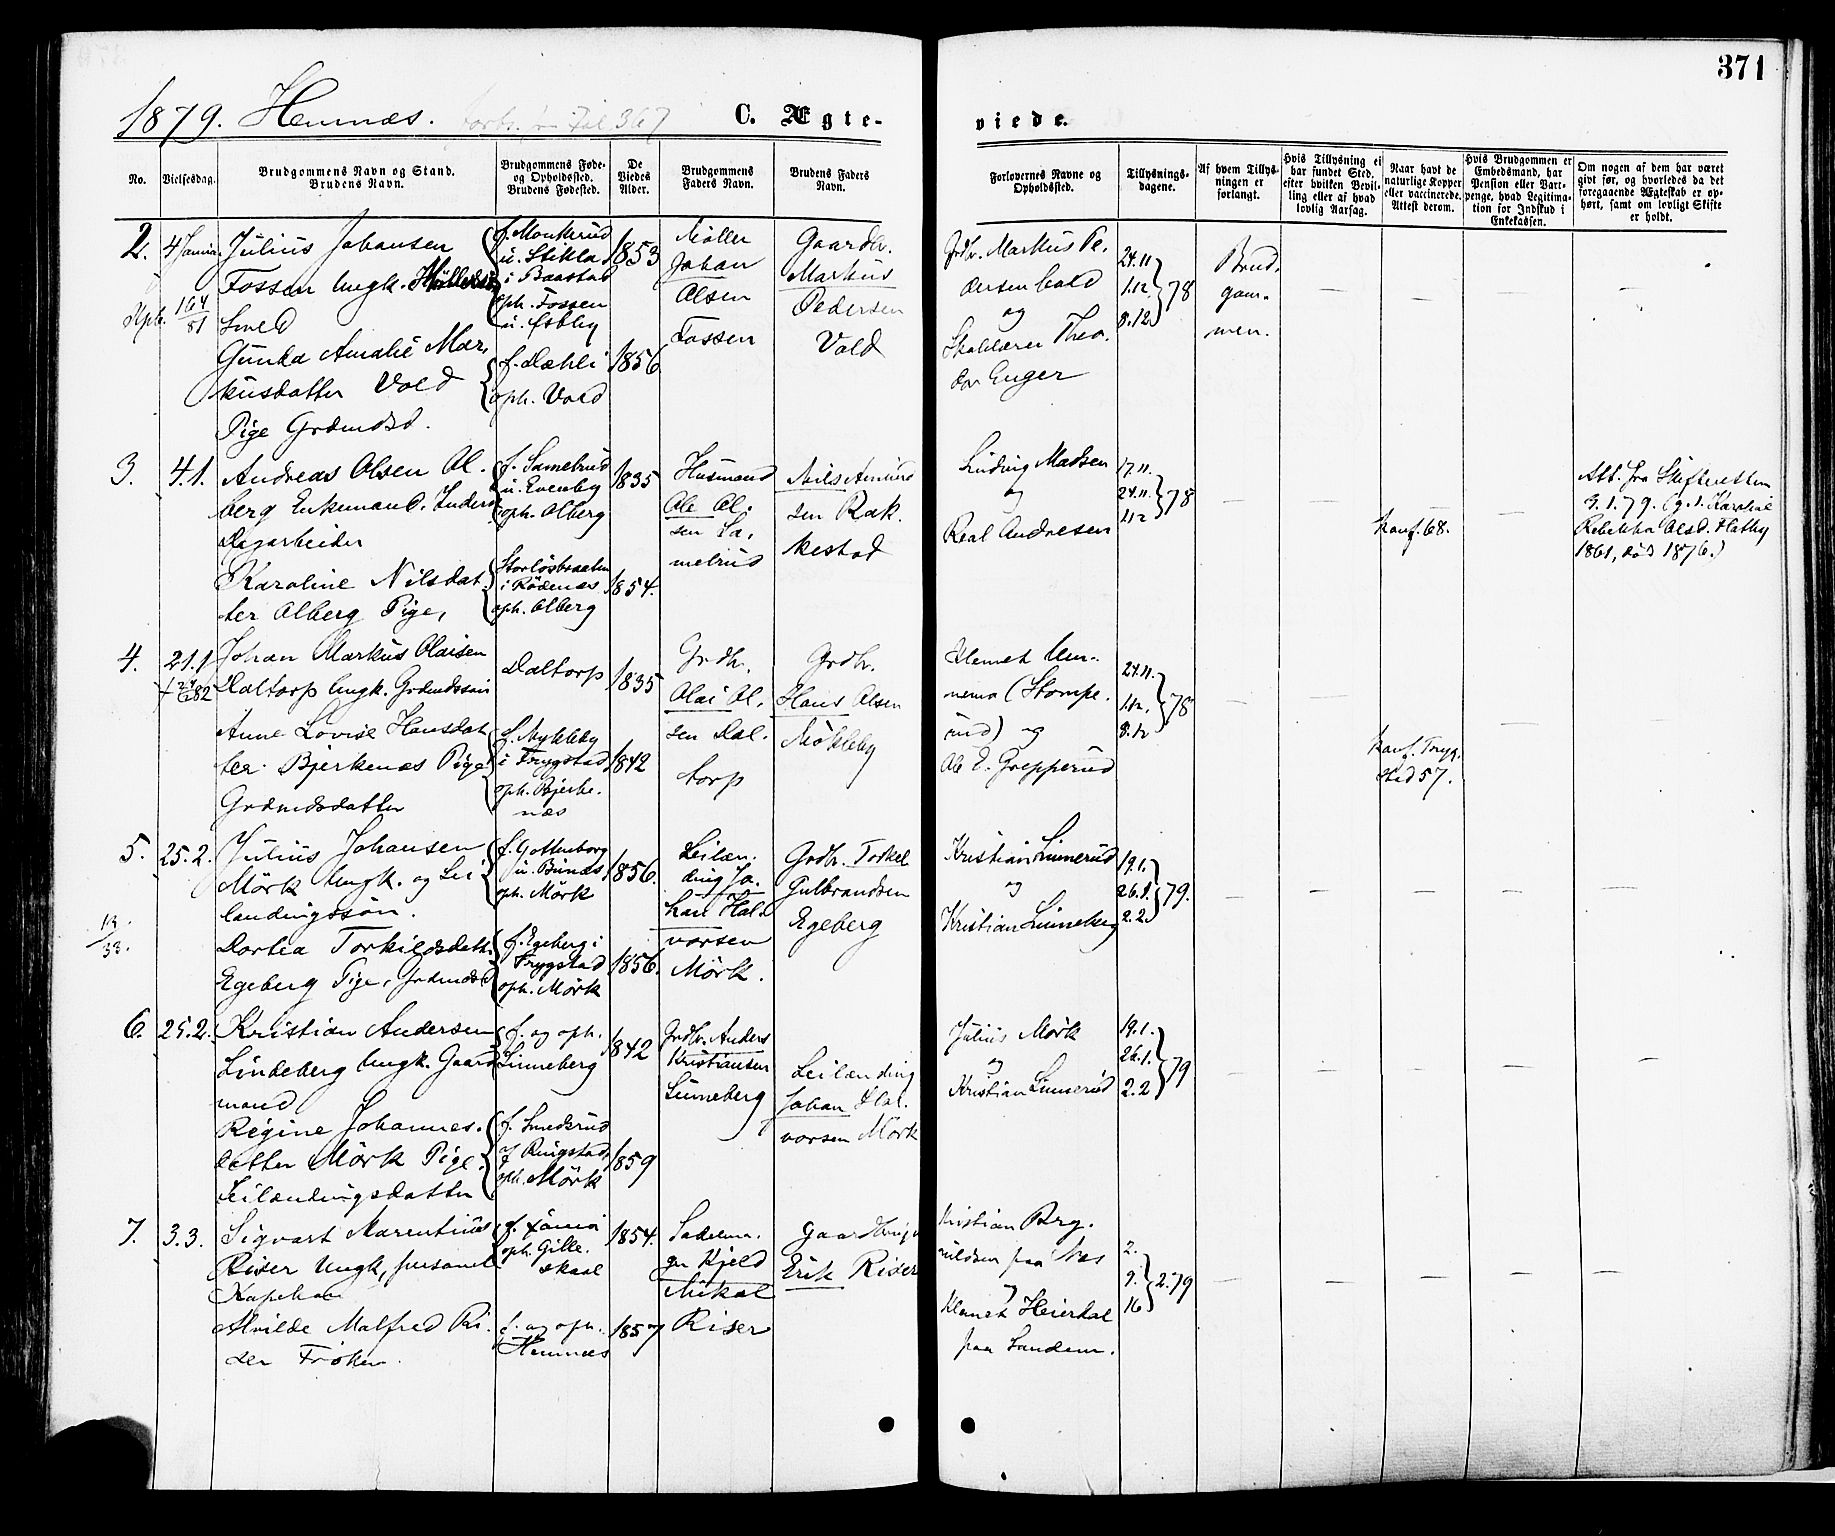 371
1879. Hemnæs. C. Ægte-
viede.
No.
Vielsesdag.
Brudgommens Navn og Stand.
Brudens Navn.
Brudgommens Føde-
og Opholdssted.
Brudens Fødested.
De
Viedes
Alder.
Brudgommens
Faders Navn.
Brudens Faders
Navn.
Forlovernes Navne og
Opholdssted.
Tillysnings-
dagene.
Af hvem Tillys-
ningen er
forlangt.
Hvis Tillysning ei
har fundet Sted,
efter hvilken Bevil-
ling eller af hvad
lovlig Aarsag.
Naar havt de
naturlige Kopper
eller vaccinerede.
Attest derom.
Hvis Brudgommen er
Embedsmand, har
Pension eller Vart-
penge, hvad Legitima-
tion for Indskud i
Enkekassen.
Om nogen af dem har været
givt før, og hvorledes da det
foregaaende Ægteskab er op-
hørt, samt om lovligt Skifte
er holdt.
2.
4 Januar
16/4
81
Julius Johansen
Fossen Ungk.
Smed
Gunda Amalie Mar-
kusdatter Vold
Pige Grdmdsd.
f. Monkerud
u. Stiklad
i Baastad
oph. Fossen
f. Dæhli
oph. Vold
1853
1856
Møller
Johan
Olsen
Fossen
Gaardbr.
Markus
Pedersen
Vold
Grdbr. Markus Pe-
dersen Vold
og
Skolelærer Theo-
dor Enger
24.11
1.12
8.12 } 78
Brud-
gom-
men.
3.
4.1.
Andreas Olsen Al-
berg Enkemand, Inderst
Dagarbeider
Karoline Nilsdat-
ter Alberg Pige,
f. Samelrud
u. Evenby
oph. Alberg
i Rödenæs
oph. Alberg
1835
1854.
Husmand
Ole Ol-
sen Sa-
melrud
Nils Amund-
sen Rak-
kestad
Ludvig Madsen
og
Real Andresen
17.11.
24.11.
1.12 } 78
konf. 68.
Att. fra Skifteretten
3.1.79. (g. 1. Karoline
Rebekka Olsd. Flatby
1861, död 1876.)
4.
21.1
Johan Markus Olaisen
Daltorp Ungk. Grdmdssøn
Anne Lovise Hansdat-
ter Bjerkenæs Pige
Grdmdsdatter
Daltorp
i Trygstad
oph. Bjerke-
næs
1835
1842
Grdbr.
Olai Ol-
sen Dal-
torp
Grdbr.
Hans Olsen
Klemet
og
Ole E. Grepperud
24.11.
1.12.
8.12 } 78
konf. Tryg-
stad 57.
5.
25.2.
13/33.
Julius Johansen
Mörk Ungk. og Lei-
lændingssön.
Dortea Torkildsdatt.
Egeberg Pige, Grdmdsd
f. Gottenborg
u. Bunæs
oph. Mörk
f. Egeberg i
Trygstad
oph. Mörk
1856.
1856.
Leilæn-
ding Jo-
han Hal-
vorsen
Mörk.
Grdbr. Torkel
Gulbrandsen
Egeberg
Kristian Linnerud
og
Kristian Linneberg
19.1.
26.1.
2.2 } 79.
6.
25.2.
Kristian Andersen
Lindeberg Ungk. Gaard-
mand
Regine Johannes-
datter Mörk Pige,
Leilændingsdatter
f. og oph.
Linneberg
f. Smedsrud
af Ringstad
oph. Mörk
1842
1859
Grdbr. Anders
Kristiansen
Linneberg
Leilænding
Johan Hal-
vorsen Mörk
Julius Mörk
og
Kristian Linnerud
19.1.
26.1.
2.2 } 79
7.
3.3.
Sigvart Marentius
Riser Ungk, personel
Kapellan
Alvilde Malfred Ri-
ser Fröken.
oph. Gille-
skaal
f. og oph.
Hemnæs
1854.
1857
Kjeld
Mikal
Riser
Erik Riser
Kristian
paa Næs
og
Klemet Heierdal
paa Sandem.
2.
9.
16 } 2.79